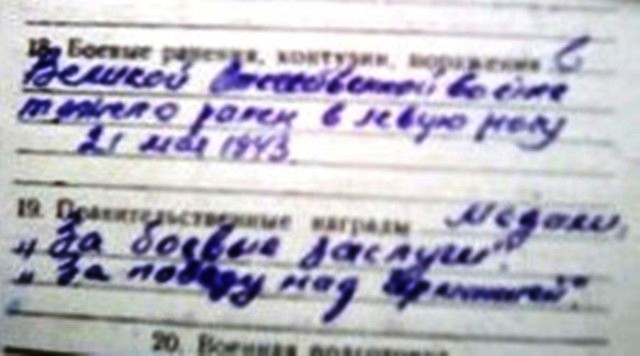 18. Боевые ранения, контузии, поражения в
Великой Отечественной войне
тяжело ранен в левую ногу
21 мая 1943
19. Правительственные награды Медали,
„За боевые заслуги".
„За победу над Германией".
20. Военная подготовка